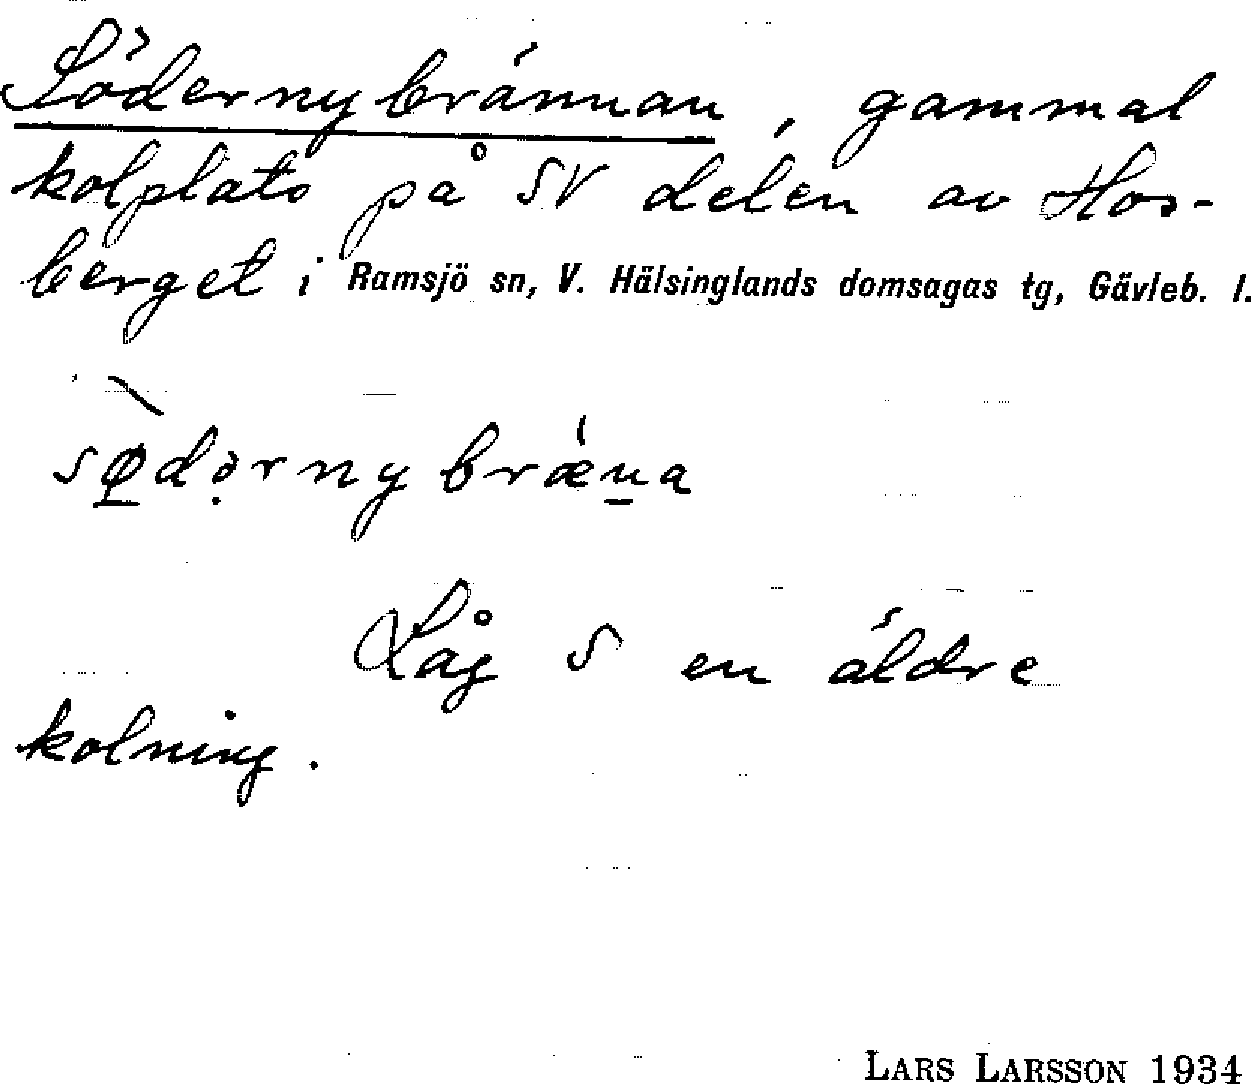 Södernybrännan, gammal
kolplats på SV delen av Hos-
berget i Ramsjö sn, V. Hälsinglands domsagas tg, Gävleb. l.
sø̠̀dərnybrǽn̠a
Låg S en äldre
kolning.
LARS LARSSON 1934